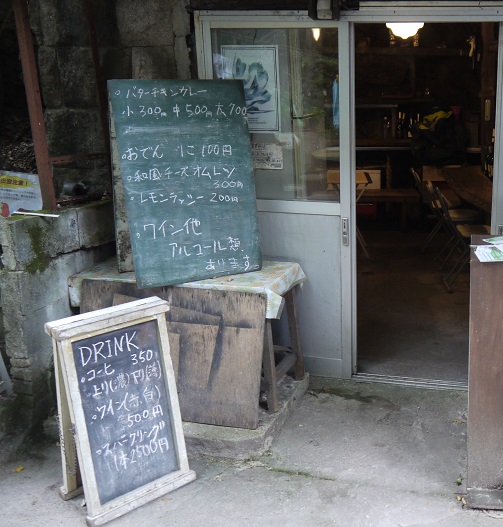 。バターチキンカレー
小300円 中500円 大700
。おでん 1こ100円
。和風チーズオムレツ
500円
。レモンラッシー 200円
。ワイン他
アルコール類
あります
DRINK
。コーヒー 350
。ワイン(赤・白)
500円
。スパークリング
1本2500円